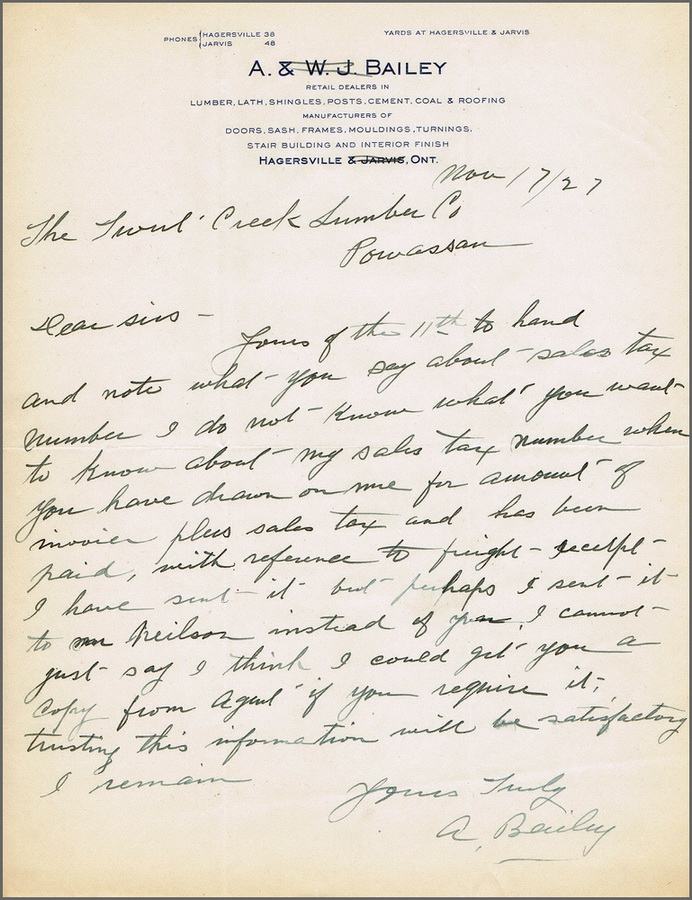 PHONES HAGERSVILLE 38
JARVIS 46
YARDS AT HAGERSVILLE & JARVIS
A. & W. J. BAILEY
RETAIL DEALERS IN
LUMBER, LATH, SHINGLES, POSTS, CEMENT, COAL & ROOFING
MANUFACTURERS OF
DOORS, SASH, FRAMES, MOULDINGS, TURNINGS,
STAIR BUILDING AND INTERIOR FINISH
HAGERSVILLE & JARVIS, ONT.
Nov 17/27
The Trout Creek Lumber Co
Powassan
Dear sirs -
Yours of the 11th to hand
and note what you say about sales tax
number I do not know what you want
to know about my sales tax number when
you have drawn on me for amount of
invoice plus sales tax and has been
paid, with reference to freight receipt
I have sent it but perhaps I sent it
to Mr Neilson instead of you. I cannot
just say I think I could get you a
copy from Agent if you require it,
trusting this information will be satisfactory
I remain
Yours Truly
A. Bailey